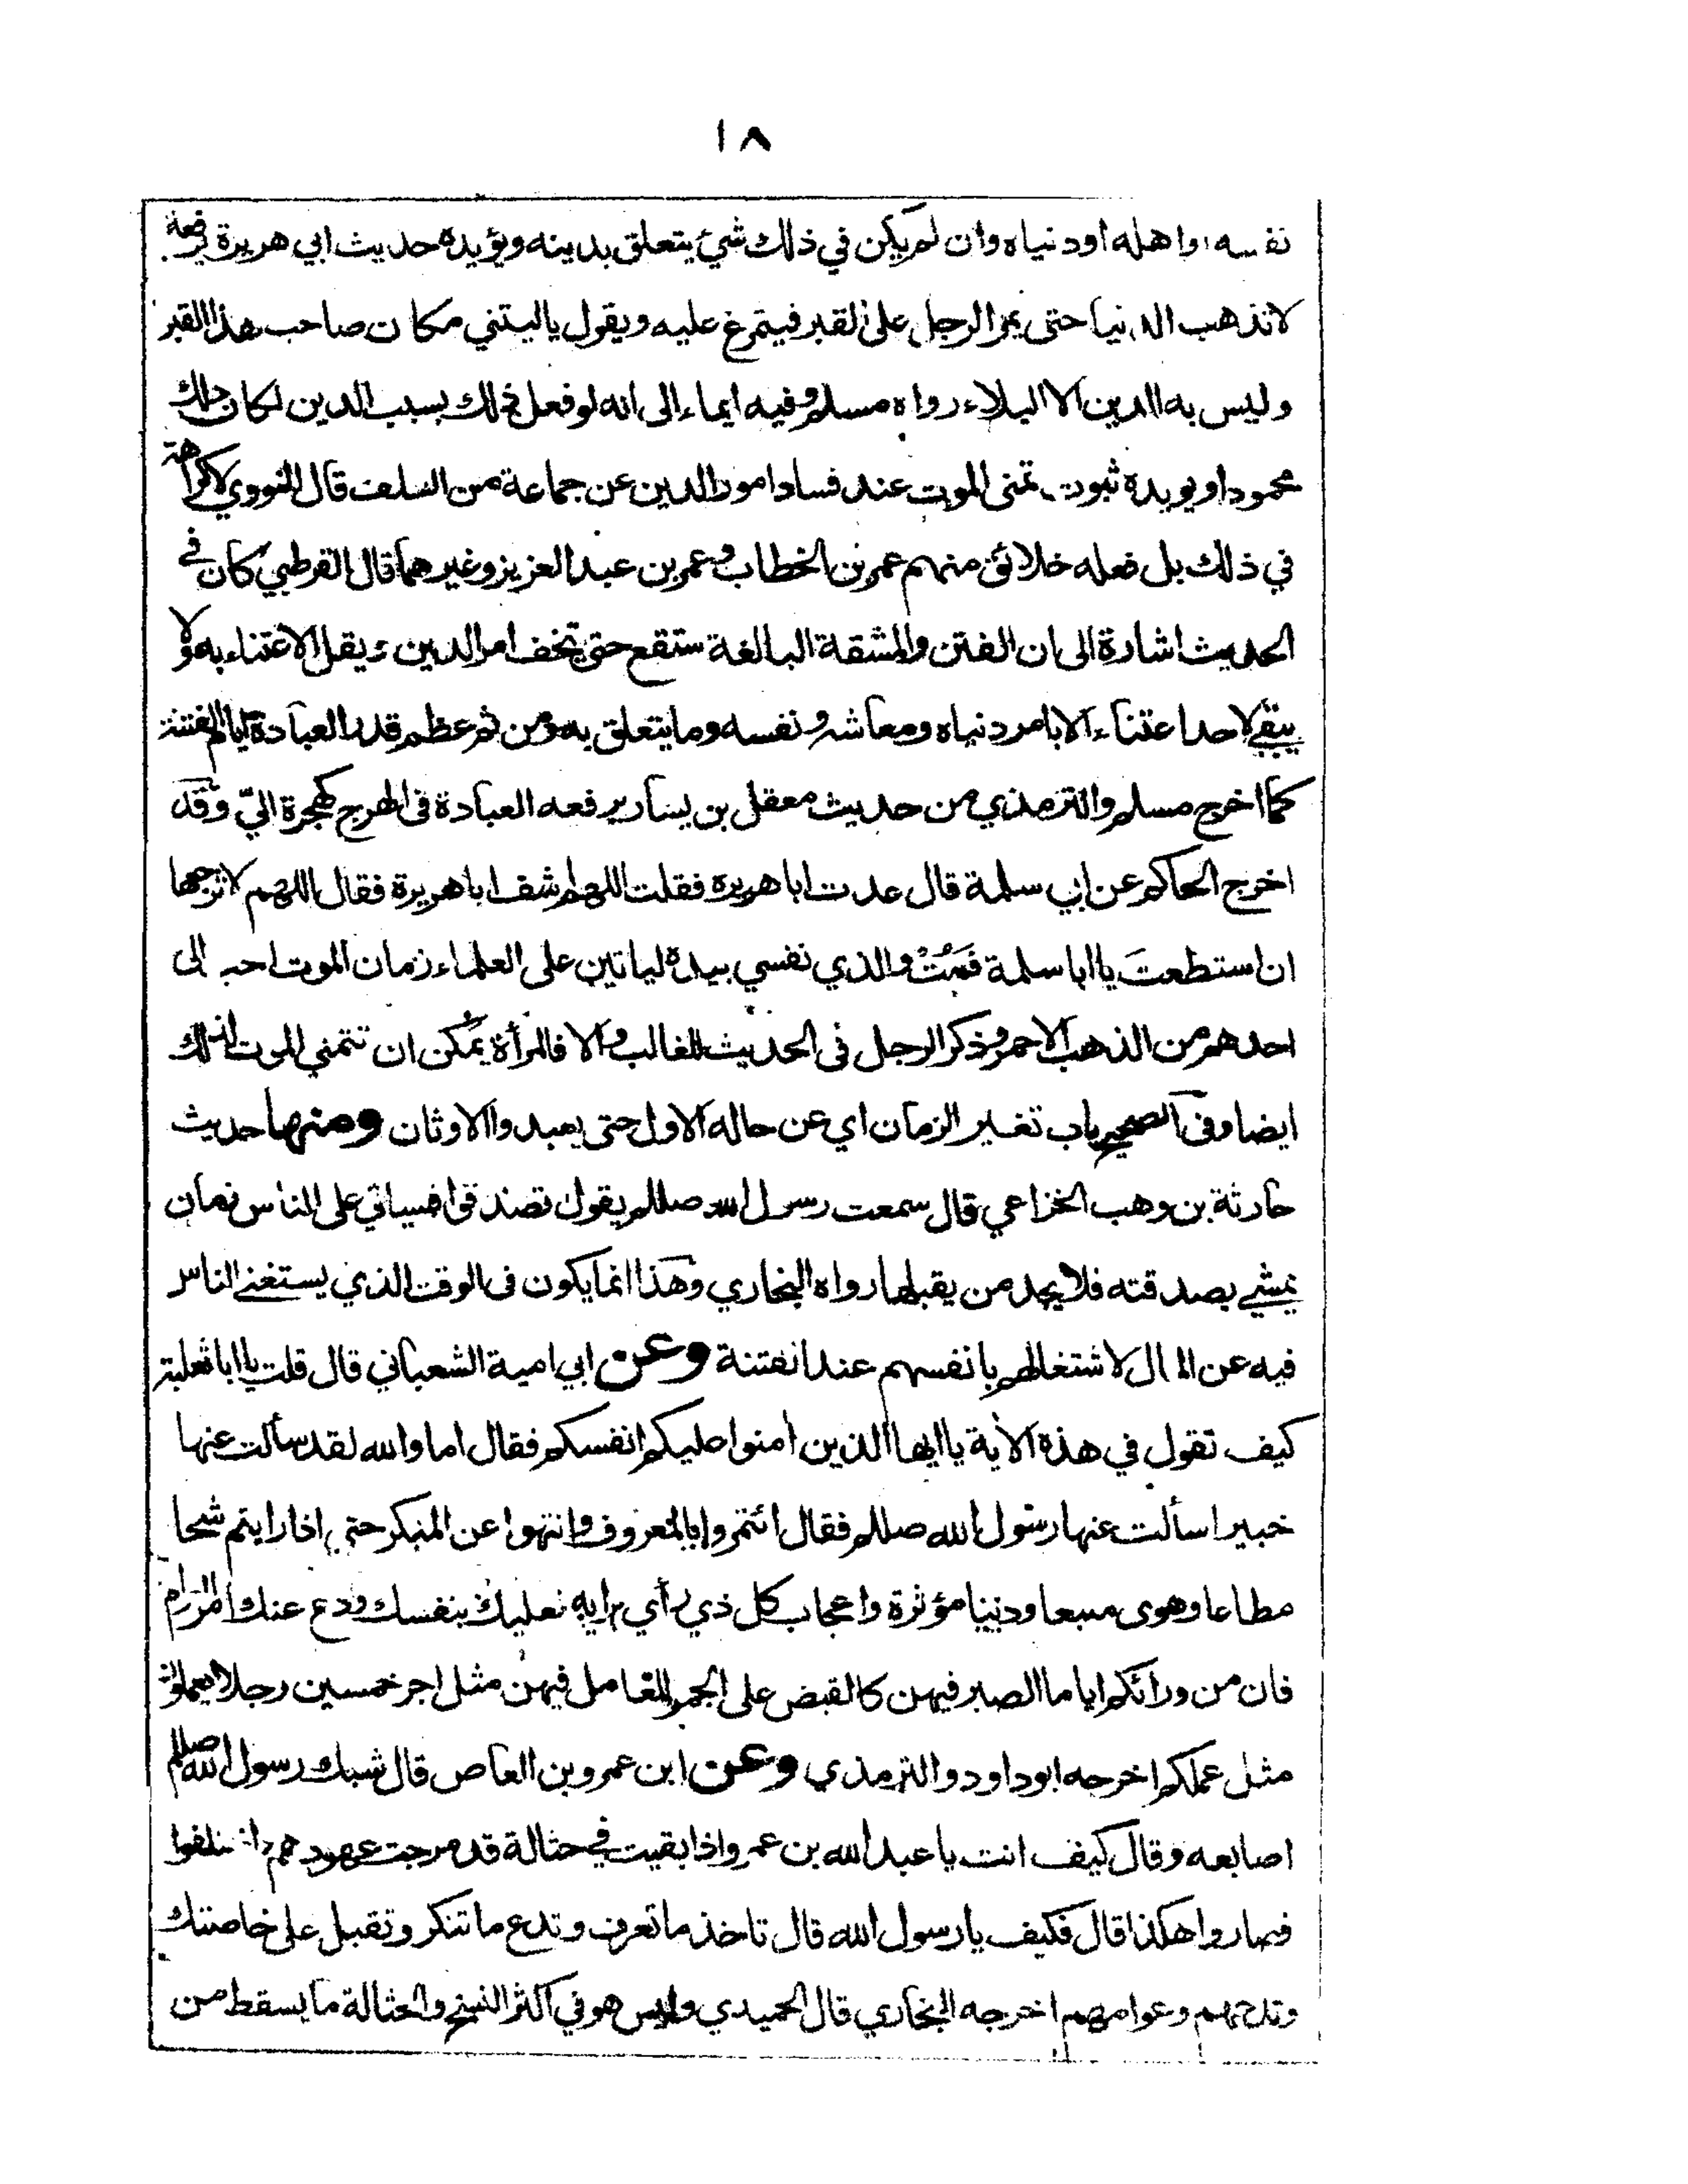 ١٨
نفسه او اهله او دنياه وان لم يكن في ذلك شيء يتعلق بدينه ويؤيده حديث ابي هريرة يرفعه
لا تذهب الدنيا حتى يمر الرجل على القبر فيتمرغ عليه ويقول يا ليتني مكان صاحب هذا القبر
وليس به الدين الا البلاء رواه مسلم وفيه ايماء الى انه لو فعل ذلك بسبب الدين لكان ذلك
محمودا ويويده ثبوت تمنى الموت عند فساد امور الدين عن جماعة من السلف قال النووي لا كراهة
في ذلك بل فعله خلائق منهم عمر بن الخطاب وعمر بن عبد العزيز وغيرهما قال القرطبي كان في
الحديث اشارة الى ان الفتن والمشقة البالغة ستقع حتى يخف امر الدين ويقل الاعتناء به ولا
يبقى لاحد اعتناء الا بامر دنياه ومعاشه ونفسه وما يتعلق به ومن ثم عظم قدر العبادة ايام الفتنة
كما اخرج مسلم والترمذي من حديث معقل بن يسار يرفعه العبادة في الهرج كهجرة اليّ وقد
اخرج الحاكم عن ابي سلمة قال عدت ابا هريرة فقلت اللهم اشف ابا هريرة فقال اللهم لا ترجعها
ان استطعتَ يا ابا سلمة فَمُتْ والذي نفسي بيده لياتين على العلماء زمان الموت احب الى
احدهم من الذهب الاحمر وذكر الرجل في الحديث للغالب والا فالمرأة يمكن ان تتمنى الموت لذلك
ايضا وفي الصحيح باب تغير الزمان اي عن حاله الاول حتى يعبدوا الاوثان ومنها حديث
حارثة بن وهب الخزاعي قال سمعت رسول الله صللم يقول تصدقوا فسياتي على الناس زمان
يمشي بصدقته فلا يجد من يقبلها رواه البخاري وهذا انما يكون في الوقت الذي يستغني الناس
فيه عن المال لاشتغالهم بانفسهم عند الفتنة وعن ابي امية الشعباني قال قلت يا ابا ثعلبة
كيف تقول في هذه الاية يا ايها الذين امنوا عليكم انفسكم فقال اما والله لقد سألت عنها
خبيرا سألت عنها رسول الله صللم فقال ائتمروا بالمعروف وانتهوا عن المنكر حتى اذا رايتم شحا
مطاعا وهوى متبعا ودنيا مؤثرة واعجاب كل ذي رأي برايه فعليك بنفسك ودع عنك امر العوام
فان من ورائكم اياما الصبر فيهن كالقبض على الجمر للعامل فيهن مثل اجر خمسين رجلا يعملون
مثل عملكم اخرجه ابو داود والترمذي وعن ابن عمرو بن العاص قال شبك رسول الله صللم
اصابعه وقال كيف انت يا عبد الله بن عمرو اذا بقيت في حثالة قد مرجت عهودهم واختلفوا
فصاروا هكذا قال فكيف يا رسول الله قال تاخذ ما تعرف وتدع ما تنكر وتقبل على خاصتك
وتدعهم وعوامهم اخرجه البخاري قال الحميدي وليس هو في اكثر النسخ والحثالة ما يسقط من